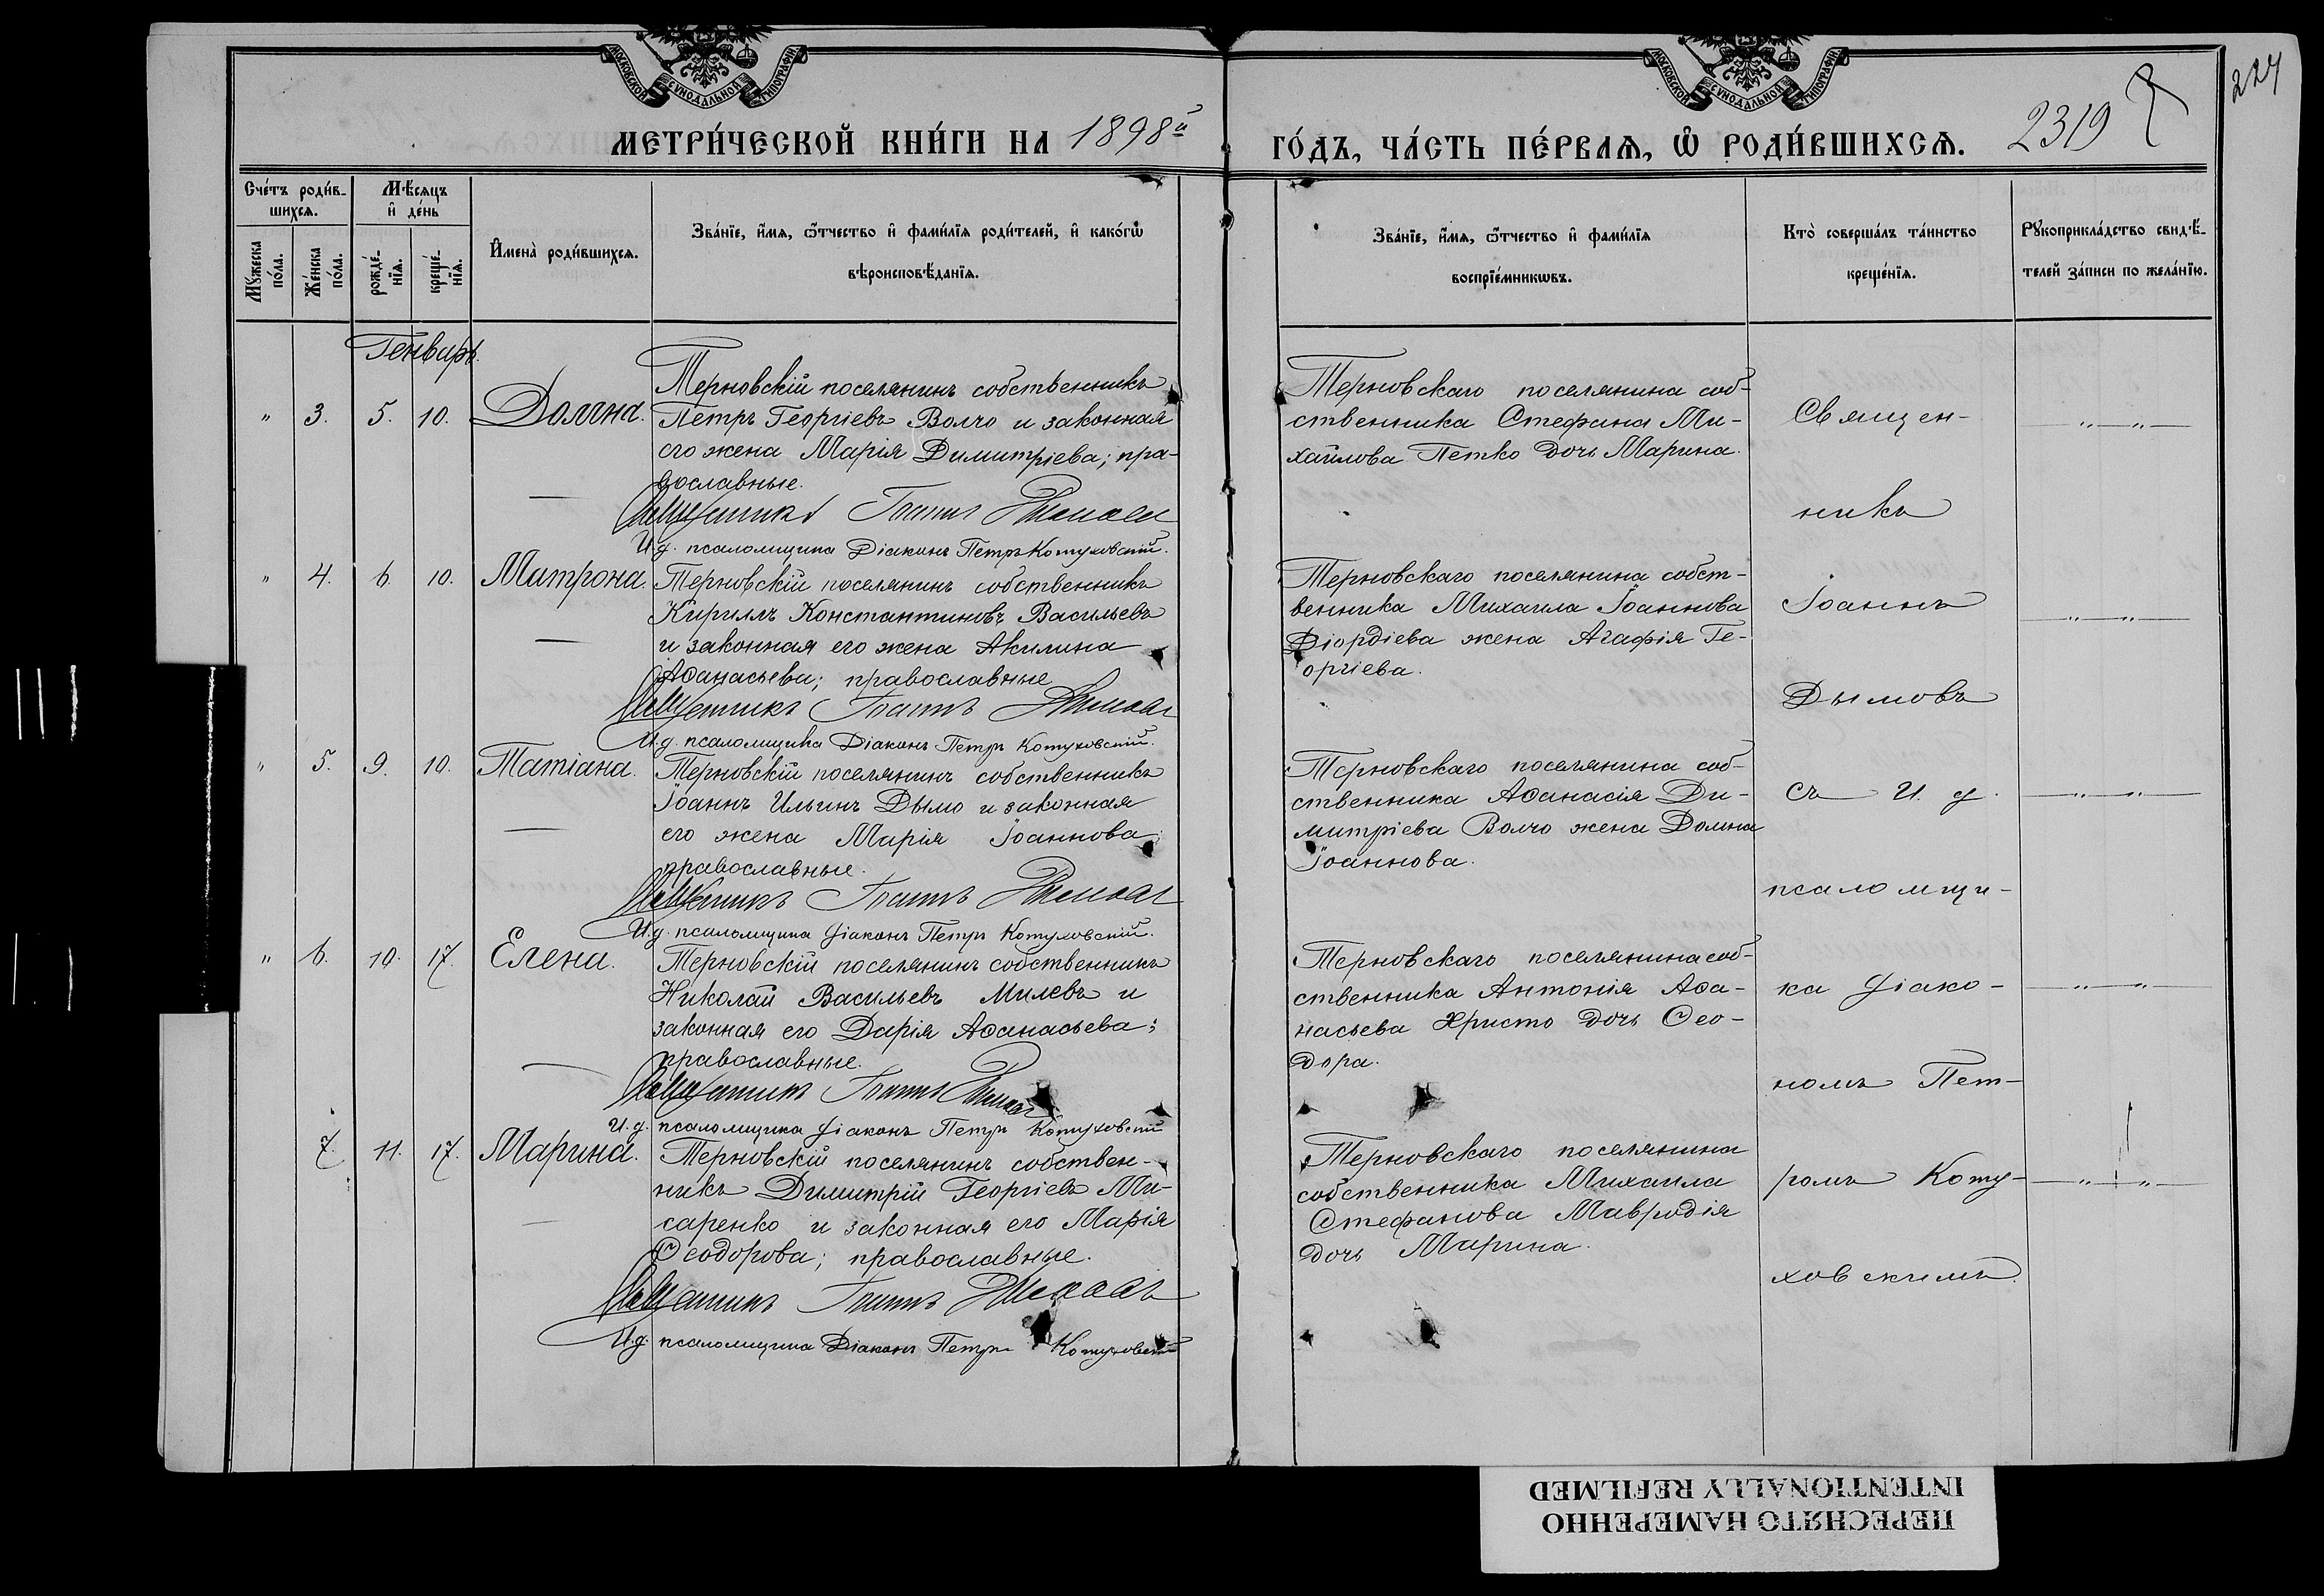 МОСКОВСКОЙ СѴНОДАЛЬНОЙ ТИПОГРАФІИ
МОСКОВСКОЙ СѴНОДАЛЬНОЙ ТИПОГРАФІИ
224
МЕТРИ́ЧЕСКОЙ КНИ́ГИ НА 1898й ГО́ДЪ, ЧА́СТЬ ПЕ́РВАѦ, Ѡ҆ РОДИ́ВШИХСѦ. 2319
Сче́тъ роди́в-
шихсѧ.
Мꙋ́жеска по́ла.
Же́нска по́ла.
Мѣ́сѧцъ
и҆ де́нь
рожде́-
нїѧ.
креще́-
нїѧ.
И҆мена̀ роди́вшихсѧ.
Зва́нїе, и҆́мѧ, ѻ҆́тчество и҆ фами́лїѧ роди́телей, и҆ како́гѡ
вѣроисповѣ́данїѧ.
Зва́нїе, и҆́мѧ, ѻ҆́тчество и҆ фами́лїѧ
воспрїе́мникѡвъ.
Кто̀ соверша́лъ та́инство
креще́нїѧ.
Рꙋкоприкла́дство свидѣ́-
телей за́писи по жела́нїю.
Генварь.
" 3. 5. 10. Домна.
Терновскій поселянинъ собственникъ
Петръ Георгіевъ Волчо и законная
его жена Марія Димитріева; пра-
вославные.
Священникъ Іоаннъ Дымовъ
И.д. псаломщика Діаконъ Петръ Котуховскій.
Терновскаго поселянина соб-
ственника Стефана Ми-
хайлова Петко дочь Марина.
" 4. 6. 10. Матрона.
Терновскій поселянинъ собственникъ
Кириллъ Константиновъ Васильевъ
и законная его жена Акилина
Аѳанасьева; православные
Священникъ Іоаннъ Дымовъ
И.д. псаломщика Діаконъ Петръ Котуховскій.
Терновскаго поселянина собст-
венника Михаила Іоаннова
Діордіева жена Агафія Ге-
оргіева.
" 5. 9. 10. Татіана.
Терновскій поселянинъ собственникъ
Іоаннъ Ильинъ Дымо и законная
его жена Марія Іоаннова;
православные.
Священникъ Іоаннъ Дымовъ
И.д. псаломщика Діаконъ Петръ Котуховскій.
Терновскаго поселянина соб-
ственника Аѳанасія Ди-
митріева Волчо жена Домна
Іоаннова.
" 6. 10. 17. Елена.
Терновскій поселянинъ собственникъ
Николай Васильевъ Милевъ и
законная его Дарія Аѳанасьева;
православные.
Священникъ Іоаннъ Дымовъ
И.д. псаломщика Діаконъ Петръ Котуховскій
Терновскаго поселянина соб-
ственника Антонія Аѳа-
насьева Христо дочь Ѳео-
дора.
7. 11. 17. Марина.
Терновскій поселянинъ собствен-
никъ Димитрій Георгіевъ Ми-
саренко и законная его Марія
Ѳеодорова; православные.
Священникъ Іоаннъ Дымовъ
И.д. псаломщика Діаконъ Петръ Котуховскій
Терновскаго поселянина
собственника Михаила
Стефанова Мавродія
дочь Марина.
Священ-
никъ
Іоаннъ
Дымовъ
съ И. д.
псаломщи-
ка Діако-
номъ Пет-
ромъ Коту-
ховскимъ.
ПЕРЕСНЯТО НАМЕРЕННО
INTENTIONALLY REFILMED